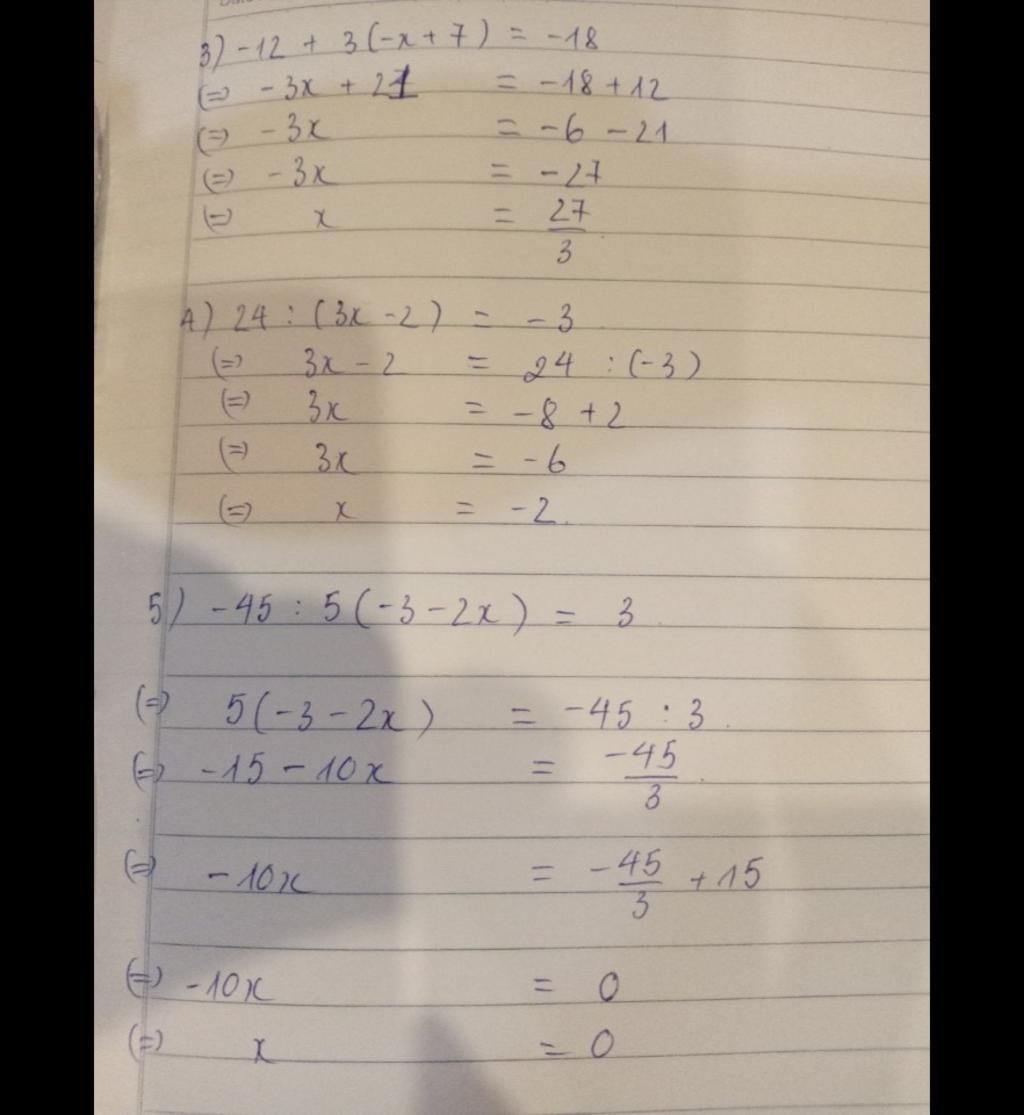 3) -12 + 3(-x+7) = -18
(=) -3x + 21 = -18 +12
(=) -3x = -6 -21
(=) -3x = -27
(=) x = 27/3
4) 24 : (3x -2) = -3
(=) 3x - 2 = 24 : (-3)
(=) 3x = -8 +2
(=) 3x = -6
(=) x = -2.
5) -45 : 5(-3-2x) = 3
(=) 5(-3-2x) = -45 : 3
(=) -15 - 10x = -45/3
(=) -10x = -45/3 +15
(=) -10x = 0
(=) x = 0